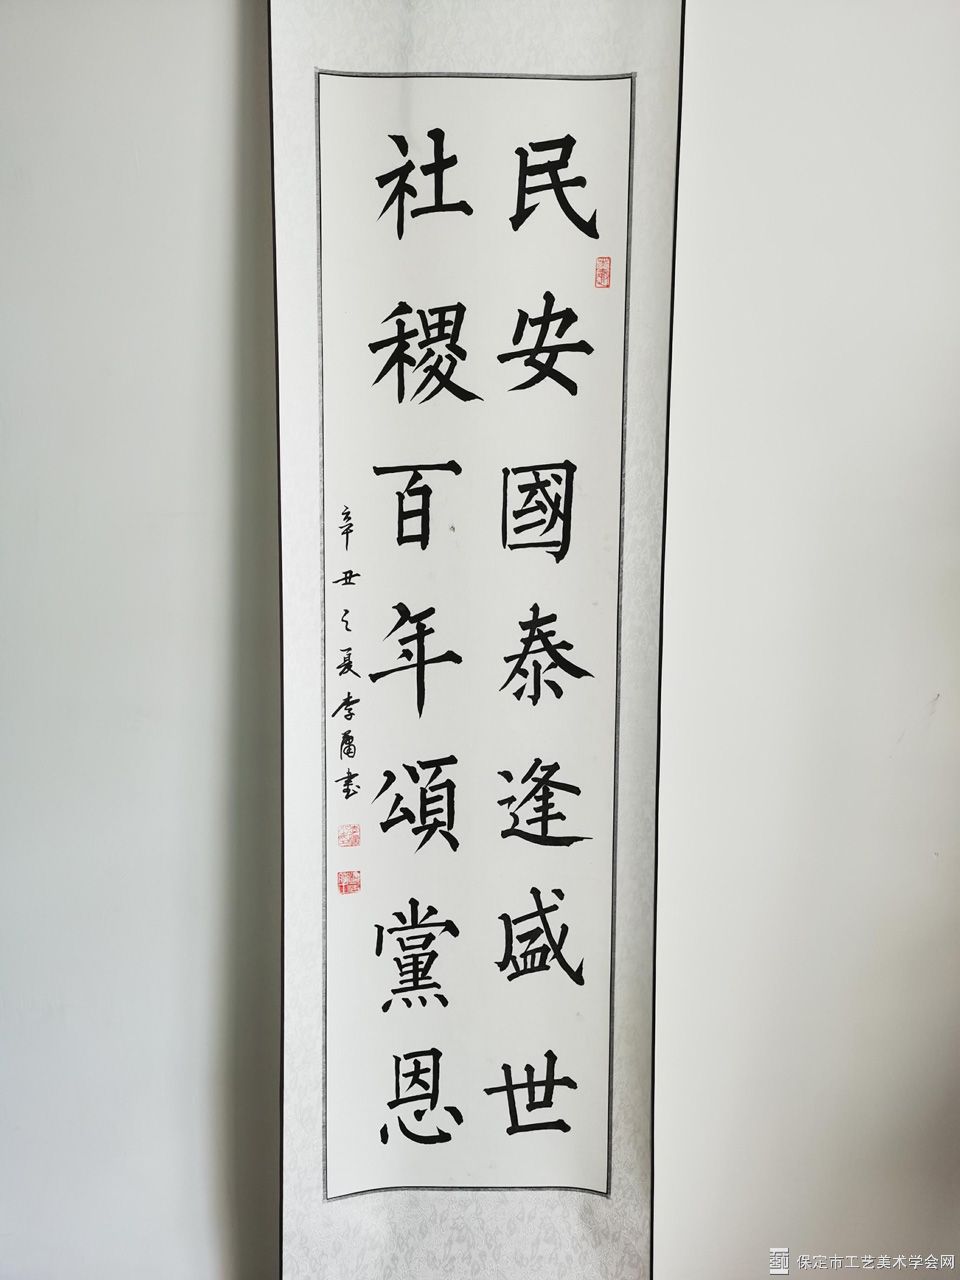 民安國泰逢盛世
社稷百年頌黨恩
辛丑之夏李爾書
保定市工艺美术学会网